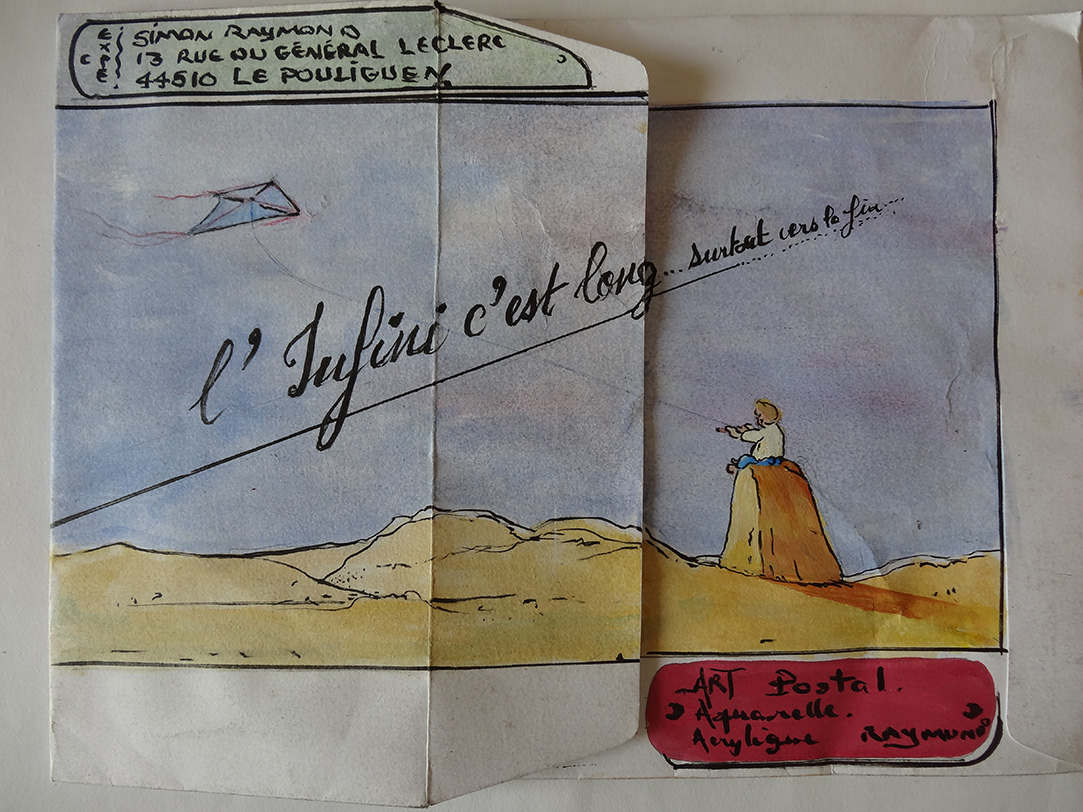 EXPE:
SIMON RAYMOND
13 RUE DU GÉNÉRAL LECLERC
44510 LE POULIGUEN
l'Infini c'est long... surtout vers la fin...
ART Postal.
Aquarelle.
Acrylique RAYMOND